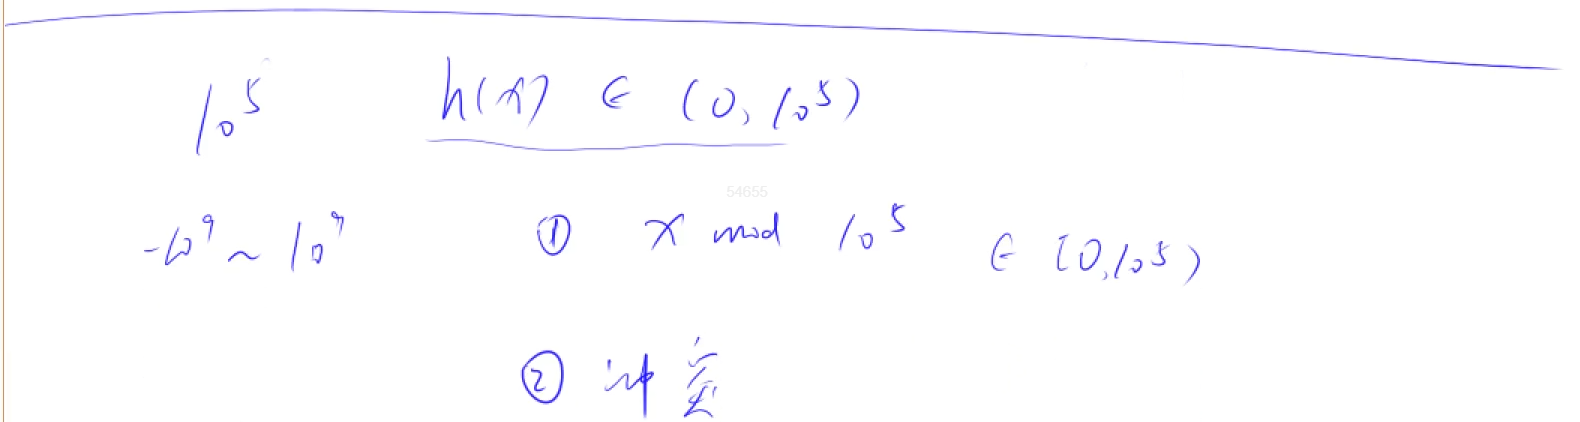 10⁵ h(x) ∈ (0, 10⁵)
54655
-10⁹ ~ 10⁹ ① x mod 10⁵ ∈ [0, 10⁵)
② 冲突